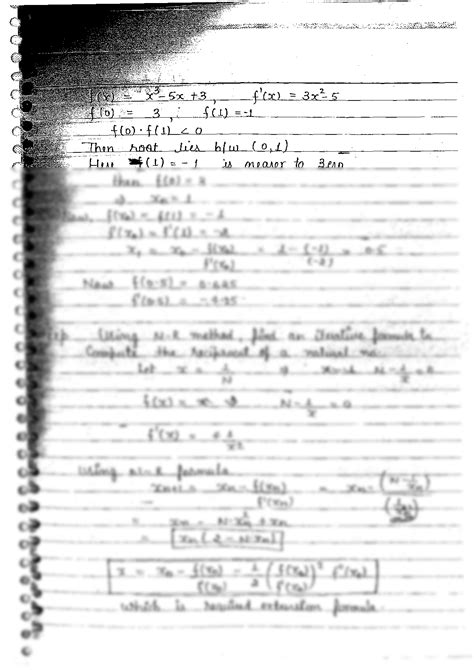 f(x) = x³-5x+3, f'(x) = 3x²-5
f(0) = 3, ; f(1) = -1
f(0)·f(1) < 0
Then root lies b/w (0,1)
Here f(1) = -1 is nearer to zero
then f(0) = 3
⇒ x₀ = 1
Now, f(x₀) = f(1) = -1
f'(x₀) = f'(1) = -2
x₁ = x₀ - f(x₀)/f'(x₀) = 1 - (-1)/(-2) = 0.5
Now f(0.5) = 0.625
f'(0.5) = -4.25
Using N-R method, find an iterative formula to
Compute the reciprocal of a natural no.
Let x = 1/N ⇒ N - 1/x = 0
f(x) = N - 1/x = 0
f'(x) = 1/x²
Using N-R formula
xn+1 = xn - f(xn)/f'(xn) = xn - (N - 1/xn)
= xn - N·xn² + xn
= xn (2 - N·xn)
x = x₀ - f(x₀)/f'(x₀) - 1/2 (f(x₀)/f'(x₀))² f''(x₀)
which is required extension formula.